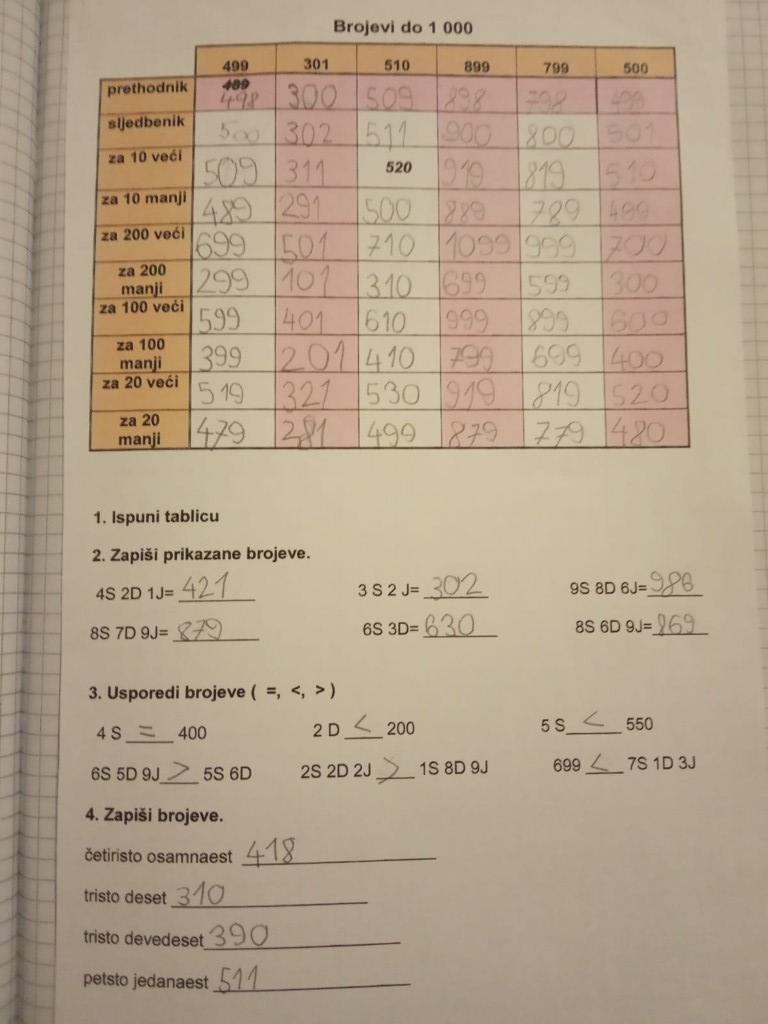 Brojevi do 1 000
499 301 510 899 799 500
prethodnik 489 498 300 509 898 798 499
sljedbenik 500 302 511 900 800 501
za 10 veći 509 311 520 919 819 510
za 10 manji 489 291 500 889 789 499
za 200 veći 699 501 710 1099 999 700
za 200 manji 299 101 310 699 599 300
za 100 veći 599 401 610 999 899 600
za 100 manji 399 201 410 799 699 400
za 20 veći 519 321 530 919 819 520
za 20 manji 479 281 499 879 779 480
1. Ispuni tablicu
2. Zapiši prikazane brojeve.
4S 2D 1J= 421 3 S 2 J= 302 9S 8D 6J= 986
8S 7D 9J= 879 6S 3D= 630 8S 6D 9J= 869
3. Usporedi brojeve ( =, <, > )
4 S = 400 2 D < 200 5 S < 550
6S 5D 9J > 5S 6D 2S 2D 2J > 1S 8D 9J 699 < 7S 1D 3J
4. Zapiši brojeve.
četiristo osamnaest 418
tristo deset 310
tristo devedeset 390
petsto jedanaest 511